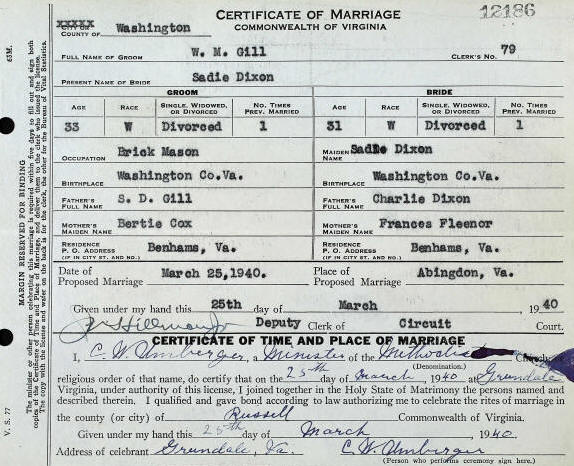 CERTIFICATE OF MARRIAGE
12186
COMMONWEALTH OF VIRGINIA
COUNTY OF Washington
FULL NAME OF GROOM W. M. Gill CLERK'S NO. 79
PRESENT NAME OF BRIDE Sadie Dixon
GROOM BRIDE
AGE RACE SINGLE, WIDOWED, OR DIVORCED NO. TIMES PREV. MARRIED AGE RACE SINGLE, WIDOWED, OR DIVORCED NO. TIMES PREV. MARRIED
33 W Divorced 1 31 W Divorced 1
OCCUPATION Brick Mason MAIDEN NAME Sadie Dixon
BIRTHPLACE Washington Co.Va. BIRTHPLACE Washington Co.Va.
FATHER'S FULL NAME S. D. Gill FATHER'S FULL NAME Charlie Dixon
MOTHER'S MAIDEN NAME Bertie Cox MOTHER'S MAIDEN NAME Frances Fleenor
RESIDENCE P. O. ADDRESS (IF IN CITY ST. AND NO.) Benhams, Va. RESIDENCE P. O. ADDRESS (IF IN CITY ST. AND NO.) Benhams, Va.
Date of Proposed Marriage March 25,1940. Place of Proposed Marriage Abingdon, Va.
Given under my hand this 25th day of March 1940
Deputy Clerk of Circuit Court.
CERTIFICATE OF TIME AND PLACE OF MARRIAGE
I, C. W. Umberger, a Minister of the Methodist Church,
(Denomination.)
religious order of that name, do certify that on the 25th day of March, 1940 at Grundale
Virginia, under authority of this license, I joined together in the Holy State of Matrimony the persons named and
described therein. I qualified and gave bond according to law authorizing me to celebrate the rites of marriage in
the county (or city) of Russell Commonwealth of Virginia.
Given under my hand this 25th day of March 1940.
Address of celebrant Grundale, Va. C. W. Umberger
(Person who performs ceremony sign here.)
65M.
MARGIN RESERVED FOR BINDING
The minister or other person celebrating this marriage is required within five days to fill out and sign both
copies of the Certificate of Time and Place of Marriage, and deliver them to the clerk who issued the license.
The copy with the license and waiver on the back is for the clerk, the other for the Bureau of Vital Statistics.
V. S. 77